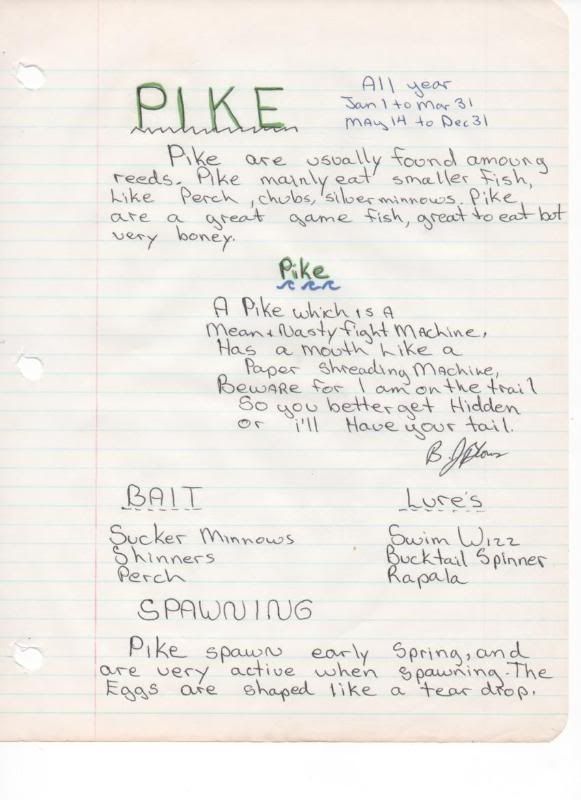 PIKE
All year
Jan 1 to Mar 31
MAy 14 to Dec 31
Pike are usually found amoung
reeds. Pike mainly eat smaller fish,
Like Perch, chubs, silver minnows. Pike
are a great game fish, great to eat but
very boney.
Pike
A Pike which is A
Mean & Nasty fight MAchine,
Has a mouth Like a
Paper Shreading MAchine,
BewARe for I am on the trail
So you better get Hidden
or i'll Have your tail.
BAIT
Sucker Minnows
Shinners
Perch
Lure's
Swim Wizz
Bucktail Spinner
Rapala
SPAWNING
Pike spawn early Spring, and
are very active when spawning. The
Eggs are shaped like a tear drop.